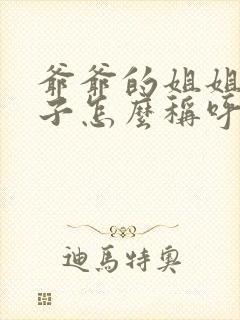 爺爺的姐姐
子怎麼稱呼
迪馬特奧